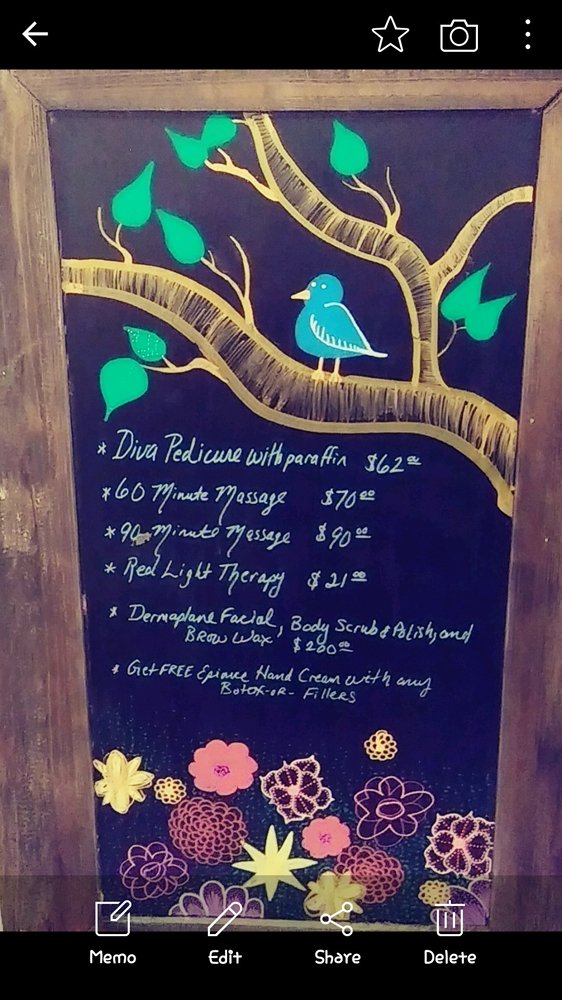 * Diva Pedicure with paraffin $62.00
* 60 Minute Massage $70.00
* 90 Minute Massage $90.00
* Red Light Therapy $21.00
* Dermaplane Facial, Body Scrub & Polish, and
Brow Wax $200.00
* Get FREE Epionce Hand Cream with any
Botox -OR- Fillers
Memo Edit Share Delete